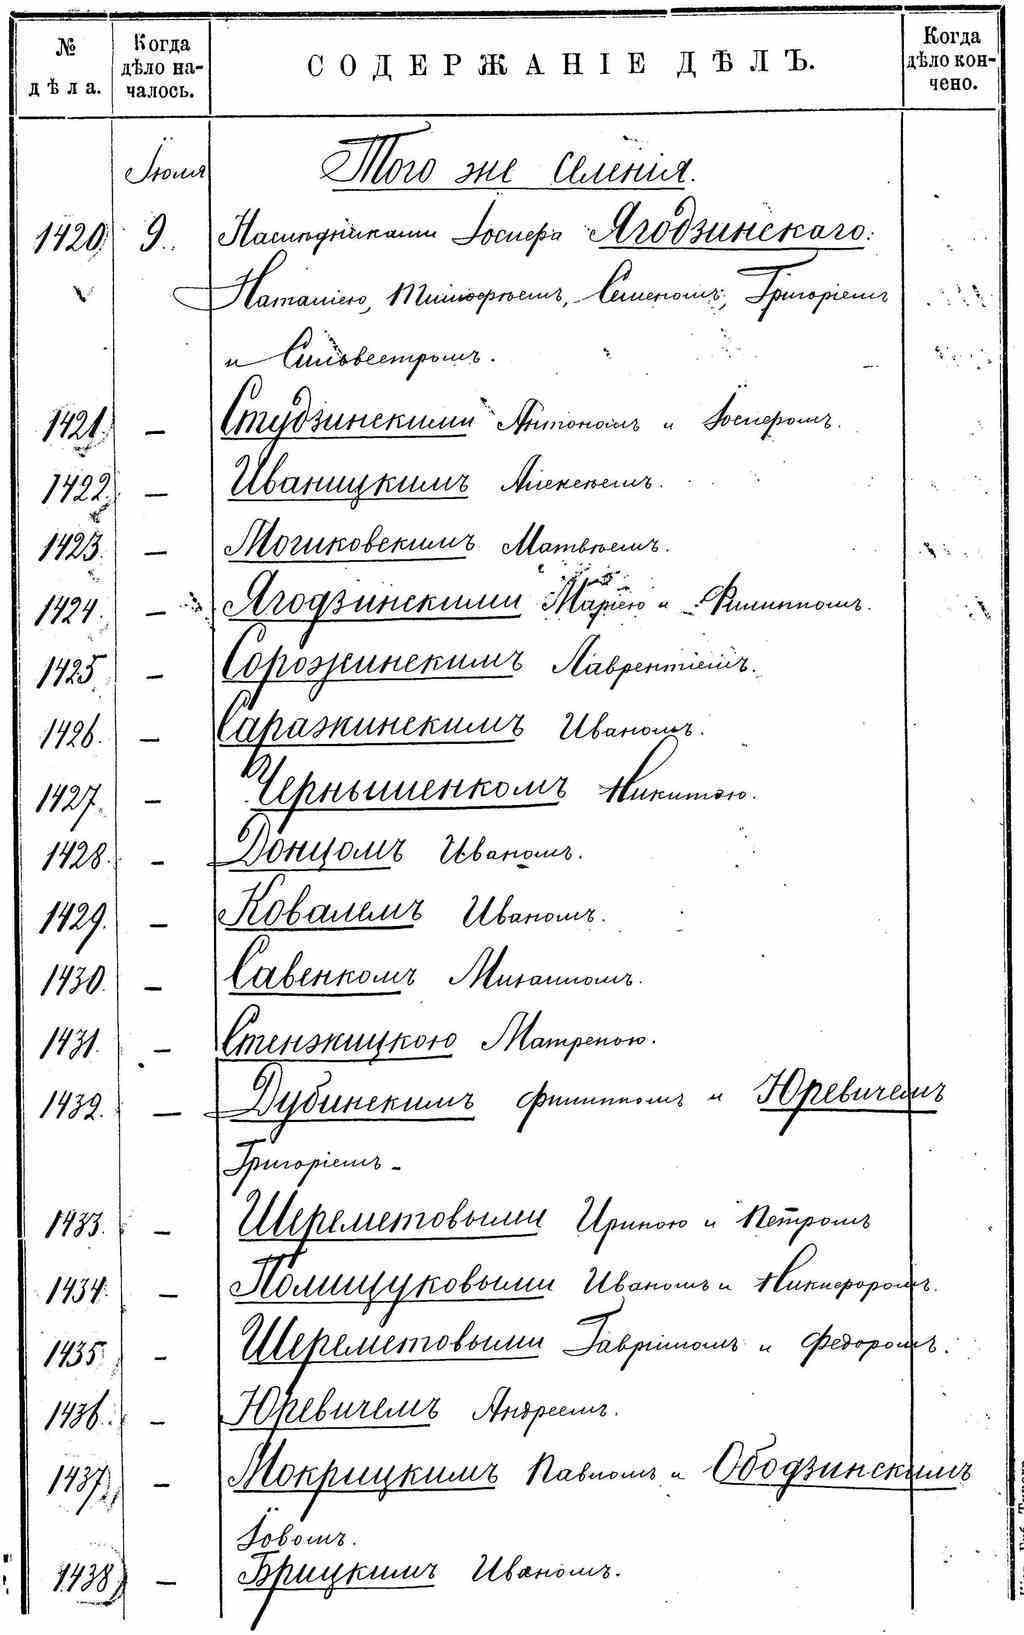 № дѣла.
Когда дѣло началось.
СОДЕРЖАНІЕ ДѢЛЪ.
Когда дѣло кончено.
Іюля Того же Селенія.
1420. 9. Наслѣдниками Іосифа Ягодзинскаго:
Наталіею, Тимофѣемъ, Семеномъ, Григоріемъ
и Сильвестромъ.
1421. — Студзинскими Антономъ и Іосифомъ.
1422. — Иваницкимъ Алексѣемъ.
1423. — Могиковскимъ Матвѣемъ.
1424. — Ягодзинскими Маріею и Филиппомъ.
1425. — Сорожинскимъ Лаврентіемъ.
1426. — Саражинскимъ Иваномъ.
1427. — Чернышенкомъ Никитою.
1428. — Донцомъ Иваномъ.
1429. — Ковалемъ Иваномъ.
1430. — Савенкомъ Михаиломъ.
1431. — Стенжицкою Матреною.
1432. — Дубинскимъ Филиппомъ и Юревичемъ
Григоріемъ.
1433. — Шереметовыми Ириною и Петромъ
1434. — Полищуковыми Иваномъ и Никифоромъ.
1435. — Шереметовыми Гавріиломъ и Федоромъ.
1436. — Юревичемъ Андреемъ.
1437. — Мокрицкимъ Павломъ и Ободзинскимъ
Іовомъ.
1438. — Брицкимъ Иваномъ.